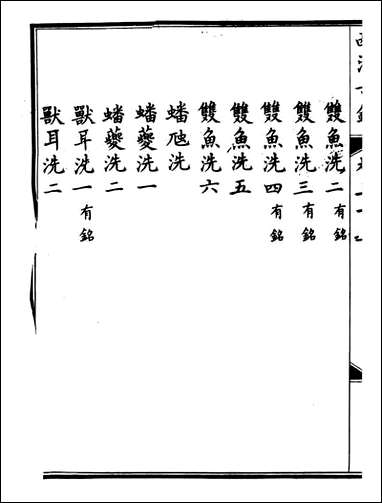 雙魚洗二有銘
雙魚洗三有銘
雙魚洗四有銘
雙魚洗五
雙魚洗六
蟠虺洗
蟠夔洗一
蟠夔洗二
獸耳洗一有銘
獸耳洗二